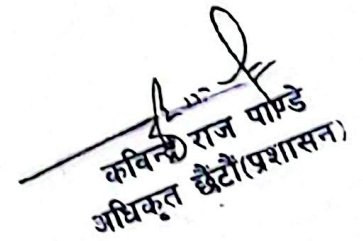 कविन्द्र राज पाण्डे
अधिकृत छैटौं(प्रशासन)